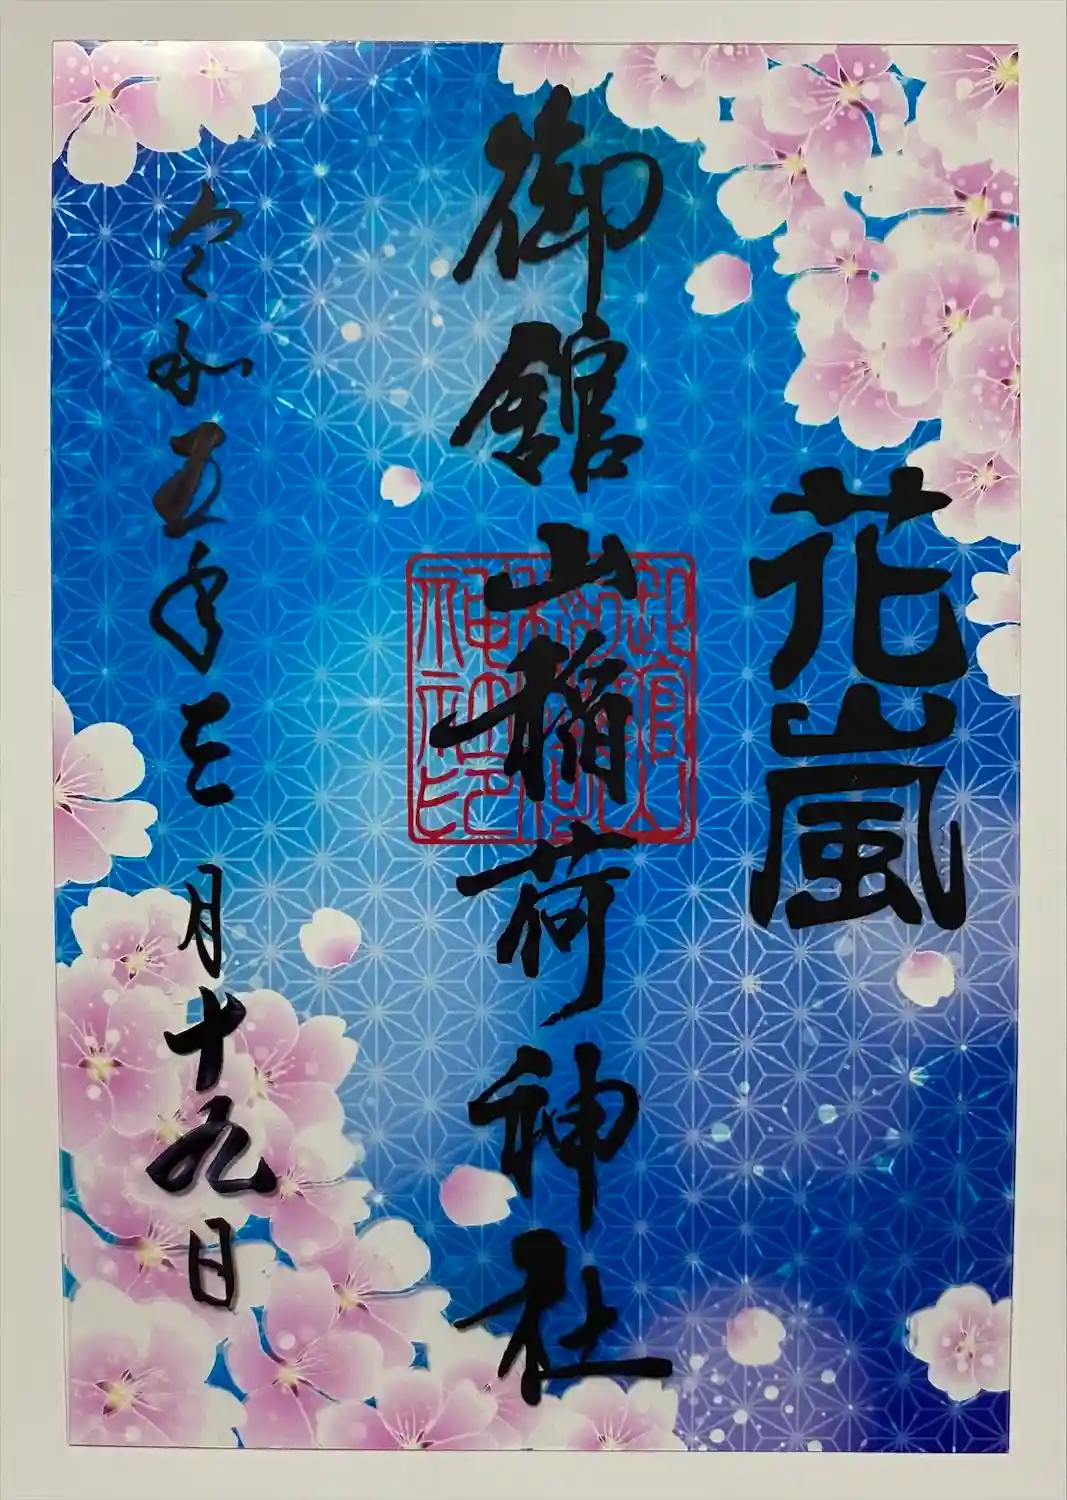 花嵐
御館山稲荷神社
令和五年三月十九日